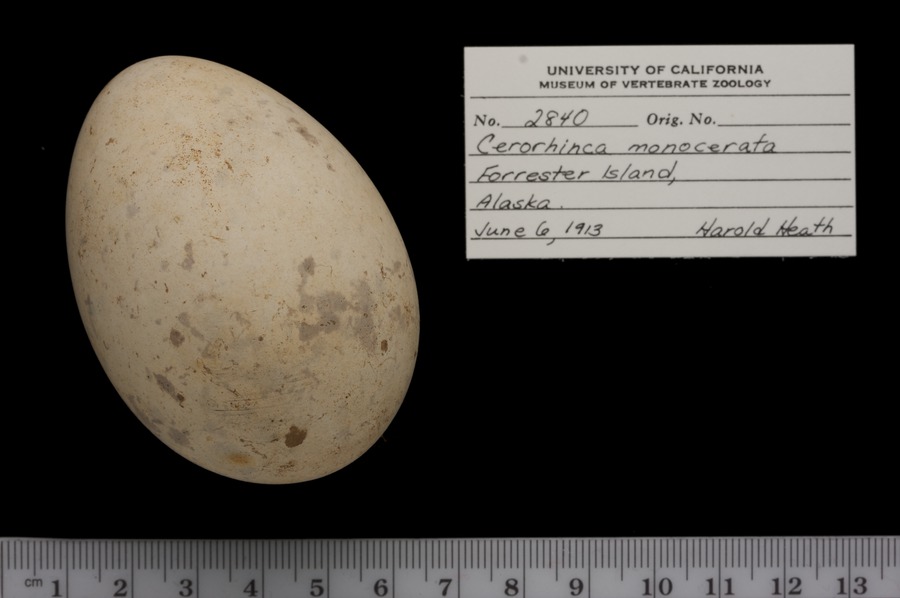 UNIVERSITY OF CALIFORNIA
MUSEUM OF VERTEBRATE ZOOLOGY
No. 2840 Orig. No.
Cerorhinca monocerata
Forrester Island,
Alaska.
June 6, 1913 Harold Heath
cm 1 2 3 4 5 6 7 8 9 10 11 12 13